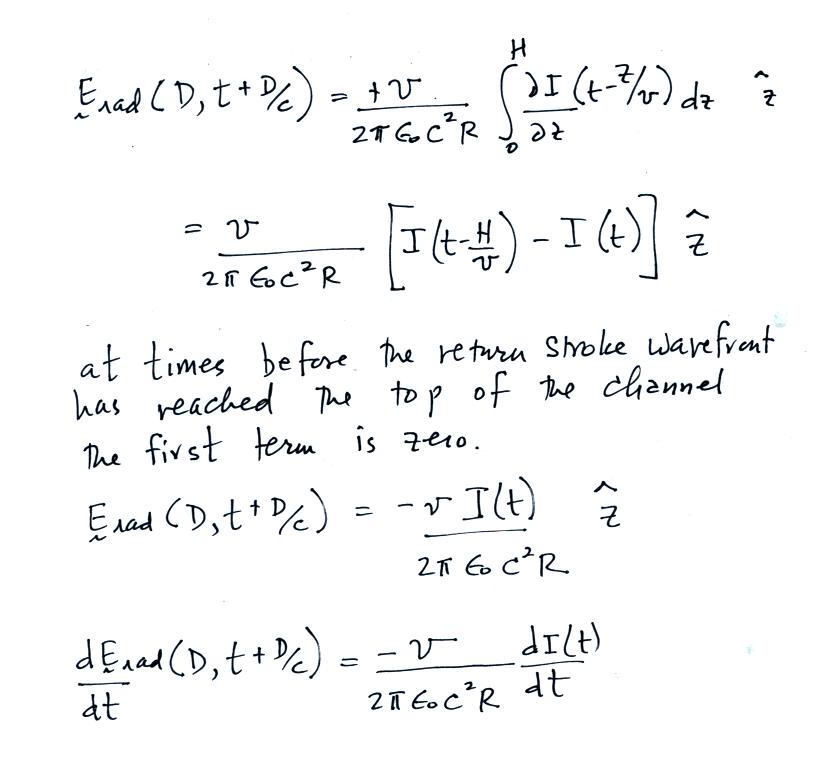 E_rad (D, t + D/c) = +v / (2π ε₀ c² R) ∫₀ᴴ ∂I/∂z (t - z/v) dz ẑ
= v / (2π ε₀ c² R) [I(t - H/v) - I(t)] ẑ
at times before the return stroke wavefront
has reached the top of the channel
the first term is zero.
E_rad (D, t + D/c) = -v I(t) / (2π ε₀ c² R) ẑ
dE_rad/dt (D, t + D/c) = -v / (2π ε₀ c² R) dI(t)/dt